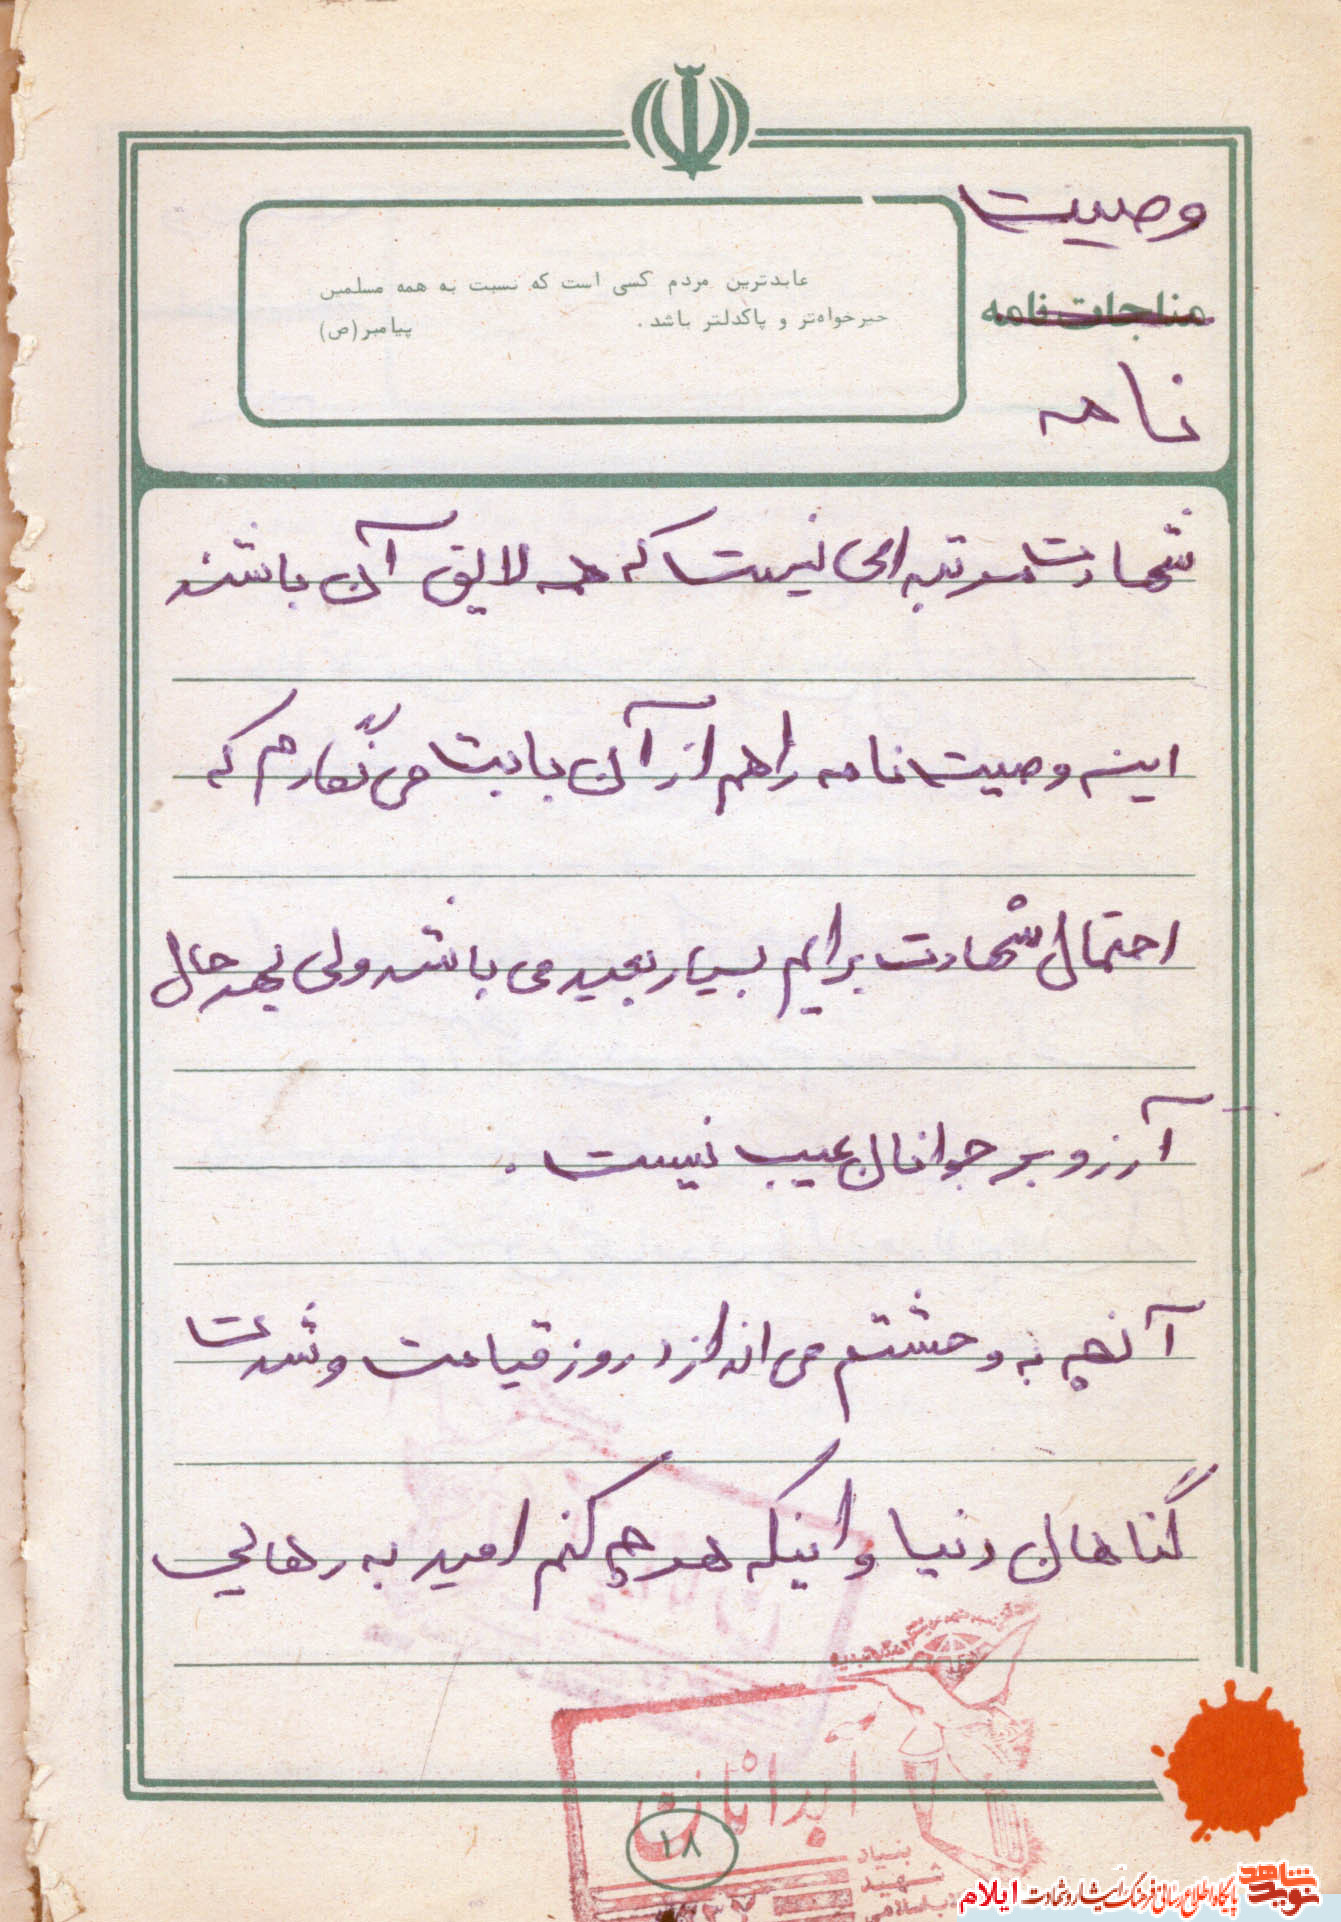 وصیت
مناجات نامه
نامه
عابدترین مردم کسی است که نسبت به همه مسلمین
خیرخواه‌تر و پاکدلتر باشد.
پیامبر(ص)
شهادت مرتبه ای نیست که همه لایق آن باشند
این وصیت نامه را هم از آن بابت می نگارم که
احتمال شهادت برایم بسیار بعید می باشد ولی بهر حال
آرزو بر جوانان عیب نیست .
آنچه به وحشتم می اندازد روز قیامت و شدت
گناهان دنیا و اینکه هر چه کنم امید به رهایی
آبدانان
بنیاد
شهید
اسلامی
۱۸
نوید شاهد
پایگاه اطلاع رسانی فرهنگ ایثار و شهادت ایلام